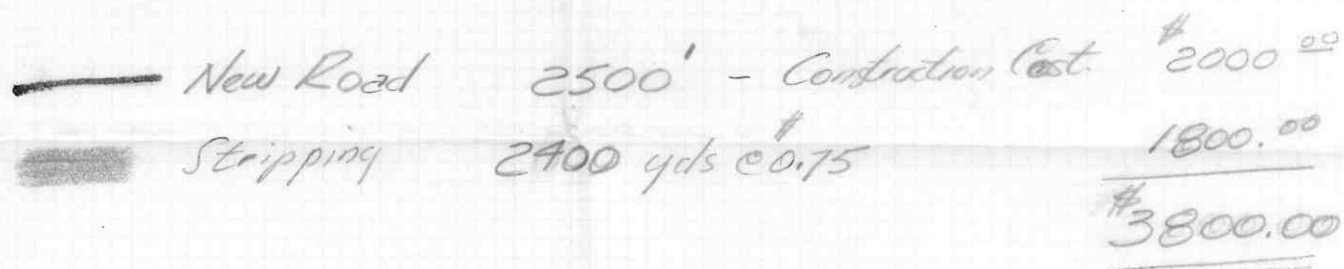 New Road 2500' - Construction Cost. $2000.00
Stripping 2400 yds @ $0.75 1800.00
$3800.00